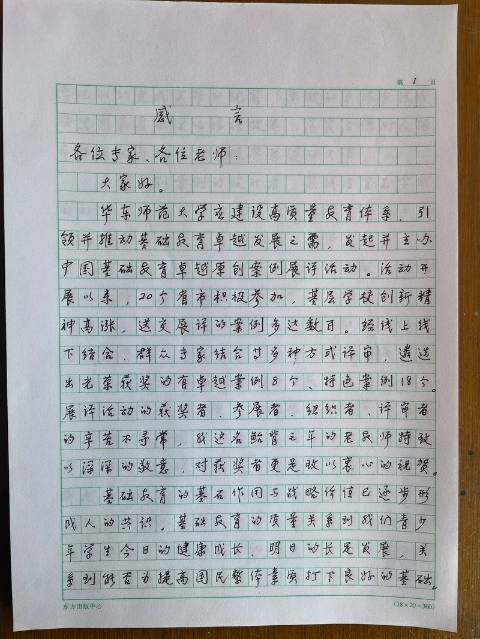 第 1 页
感言
各位专家、各位老师：
大家好。
华东师范大学应建设高质量教育体系、引
领并推动基础教育卓越发展之需，发起并主办
中国基础教育卓越原创案例展评活动。活动开
展以来，20个省市积极参加，基层学校创新精
神高涨，送交展评的案例多达数百。经线上线
下结合、群众专家结合等多种方式评审，遴选
出光荣获奖的有卓越案例8个、特色案例18个。
展评活动的获奖者、参展者、组织者、评审者
的辛苦不寻常，我这名鲐背之年的老教师特致
以深深的敬意，对获奖者更是致以衷心的祝贺。
基础教育的基石作用与战略价值已逐步形
成人的共识。基础教育的质量关系到我们青少
年学生今日的健康成长、明日的长足发展，关
系到能否为提高国民整体素质打下良好的基础。
东方出版中心
(18×20=360)